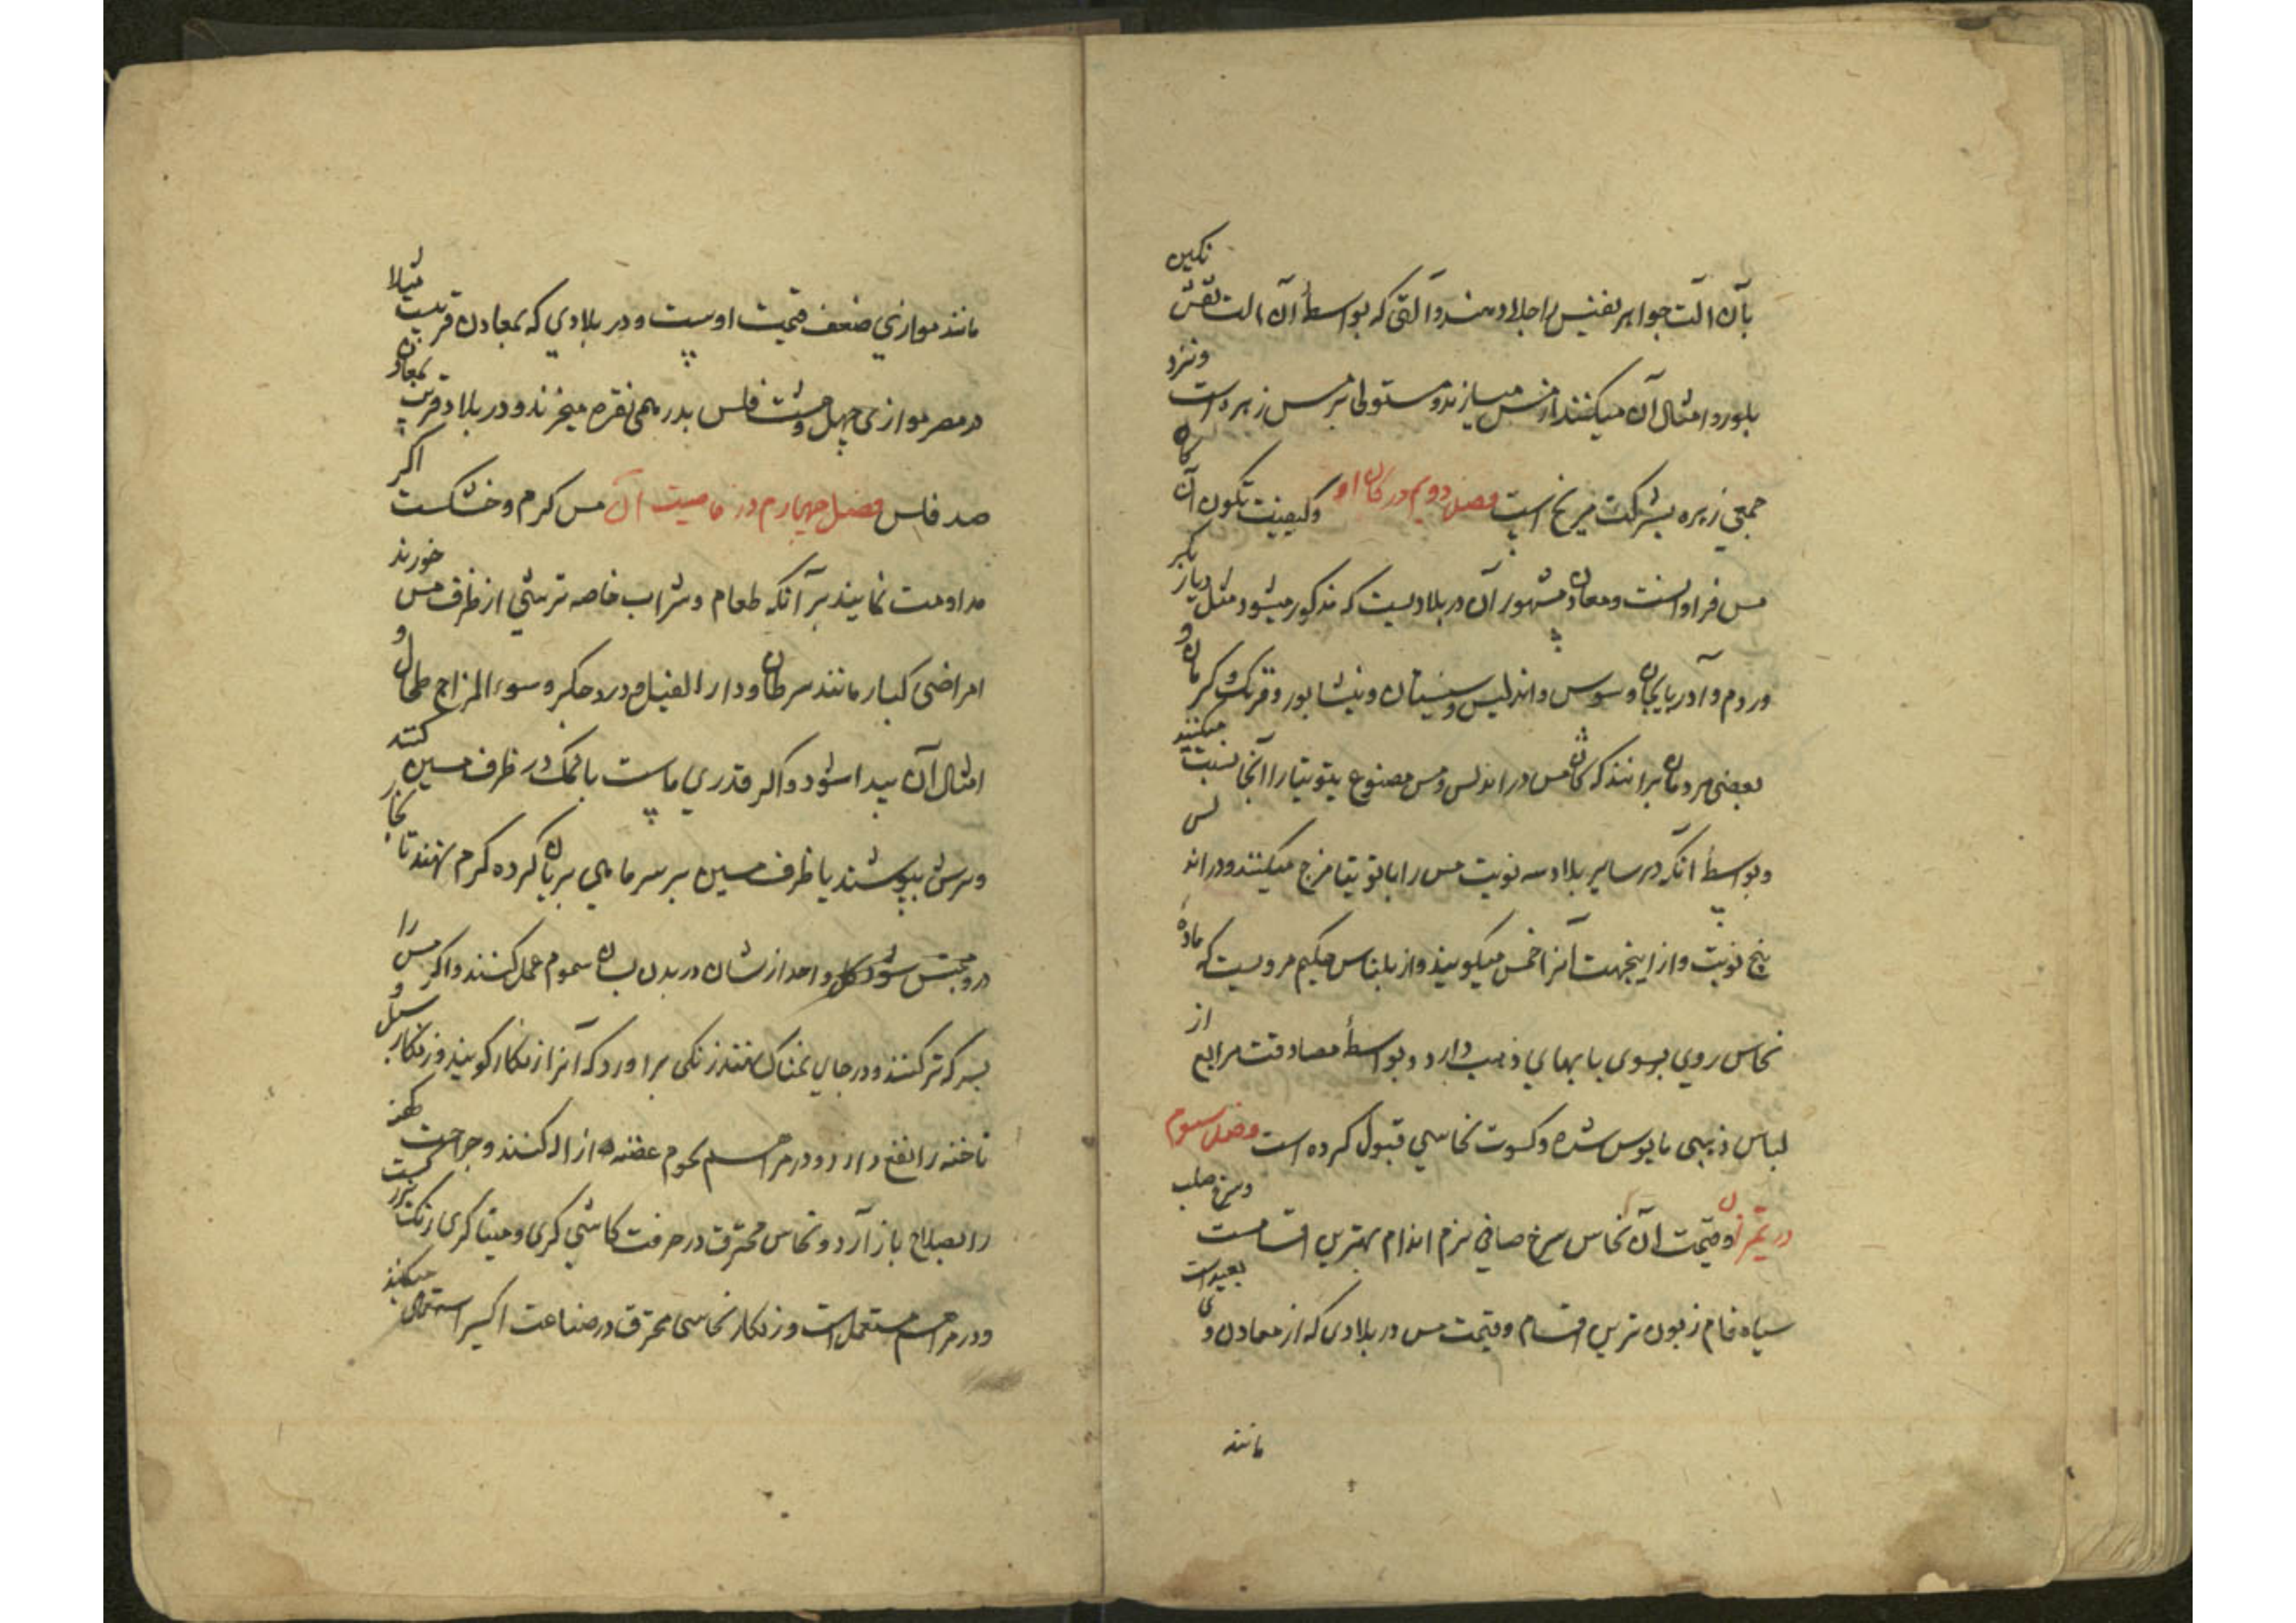 بآن الت جواهر نفیس را جلا دهند و آلتی که بواسطهٔ آن الت نقش نکین
بلور و امثال آن میکنند از مس میسازند و مستولی بر مس زهره است و نزد
جمعی زهره بشرکت مریخ است فصل دویم در کان او و کیفیت تکون آن کان
مس فراوانست و معادن مشهور آن در بلادیست که مذکور میشود مثل دیار بکر
و روم و آذربایجان و سوس و اندلیس و سیستان و نیشابور و فرنک و کرمان و
بعضی مردمان برانند که کان مس در اندلس و مس مصنوع بتوتیا را آنجا نسبت میکنند
و بواسطهٔ انکه در سایر بلاد سه نوبت مس را با توتیا مزج میکنند و در اندلس
پنج نوبت و از اینجهت آنرا خمس میکویند و از بلیناس حکیم مرویست که مادهٔ
نحاس روی بسوی بابهای ذهب دارد و بواسطهٔ مصادقت مرابع از
لباس ذهبی مایوس شده و کسوت نحاسی قبول کرده است فصل سیوم
در تمیز او و قیمت آن نحاس سرخ صافی نرم اندام بهترین اقسامست و سرخ صلب
سیاه فام زبون ترین اقسام و قیمت مس در بلادی که از معادن وی بعیدست
مانند
مانند موازی ضعف قیمت اوست و در بلادی که بمعادن قریبست مثلا
در مصر موازی چهل و هشت فلس بدرهمی نقره میخرند و در بلاد قریب بمعادن
صد فلس فصل چهارم در خاصیت آن مس کرم و خشکست اکر
مداومت نمایند بر آنکه طعام و شراب خاصه ترشی از ظرف مس خورند
امراضی کبار مانند سرطان و دار الفیل و درد جکر و سوء المزاج طحال و
امثال آن پیدا شود و اکر قدری ماست با نمک در ظرف مسین کنند
و سرش بپوشند یا ظرف مسین بر سر ماهی بریان کرده کرم نهند تا بخار
درو محتبس شود کل واحد ازشان در بدن بسان سموم عمل کنند و اکر مس را
بسرکه تر کنند و در جای نمناک نهند زنکی برآورد که آنرا زنکار کویند و زنکار سبل و
ناخنه را نفع دارد و در مراهم لحوم عفنه ازاله کنند و جراحت کهنه
را بصلاح باز آرد و نحاس محترق در حرفت کاشی کری و مینا کری رنکست سبز
و در مراهم مستعمل است و زنکار نحاسی محترق در صناعت اکسیر استعمال میکنند